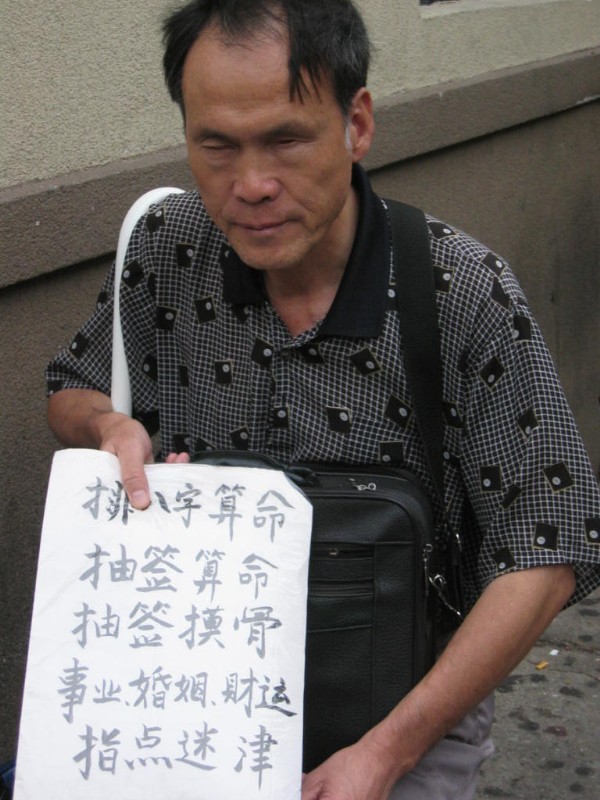 排八字算命
抽签算命
抽签摸骨
事业、婚姻、财运
指点迷津